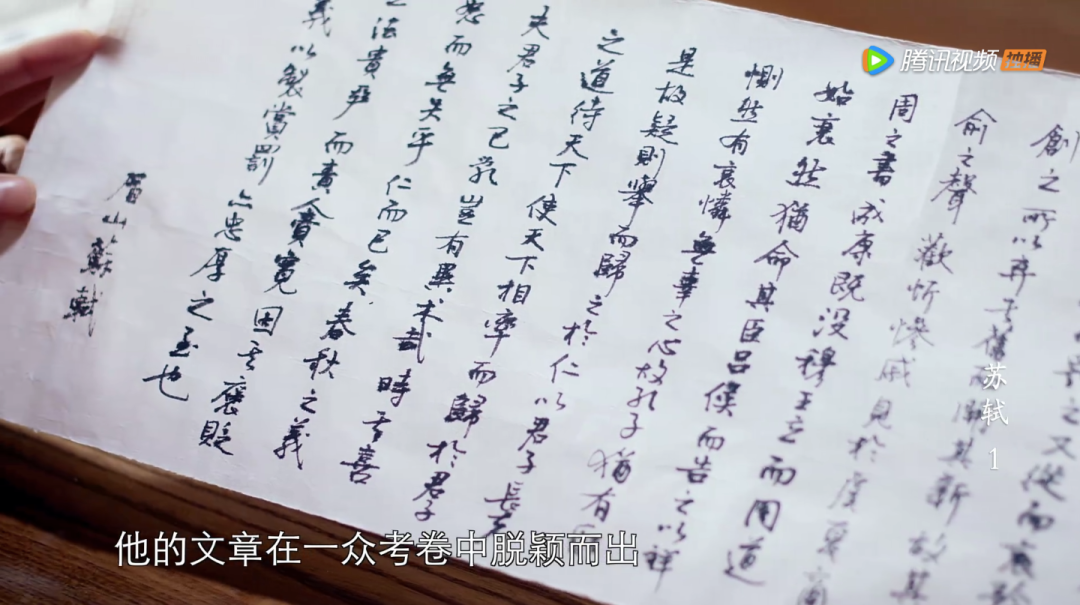 之又從而哀矜
創之所以弃其舊而開其新故其
俞之聲歡忻慘戚見於虞夏商
周之書成康既没穆王立而周道
始衰然猶命其臣呂侯而告之以祥
惻然有哀憐無辜之心故孔子猶有
是故疑則舉而歸之於仁以君子長者
之道待天下使天下相率而歸於君子
夫君子之已亂豈有異术哉時其喜
怒而無失乎仁而已矣春秋之義
法貴嚴而責人貴寬因其褒貶
義以製賞罰亦忠厚之至也
眉山蘇軾
腾讯视频 独播
苏轼 1
他的文章在一众考卷中脱颖而出